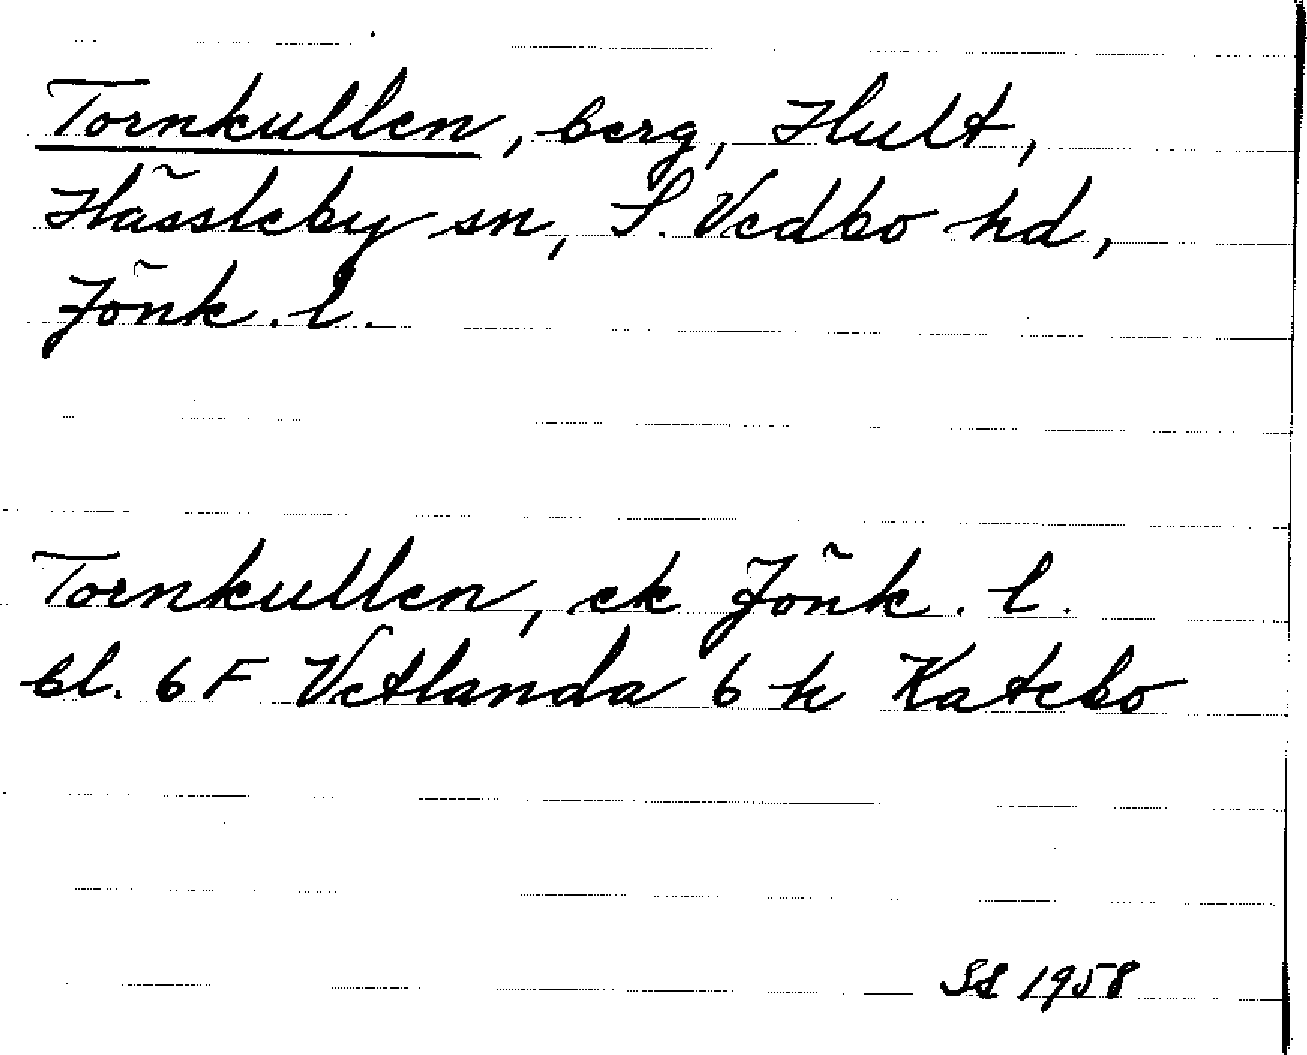 Tornkullen, berg, Hult,
Hässleby sn, S. Vedbo hd,
Jönk. l.
Tornkullen, ek Jönk. l.
bl. 6 F Vetlanda 6 h Katebo
SL 1958